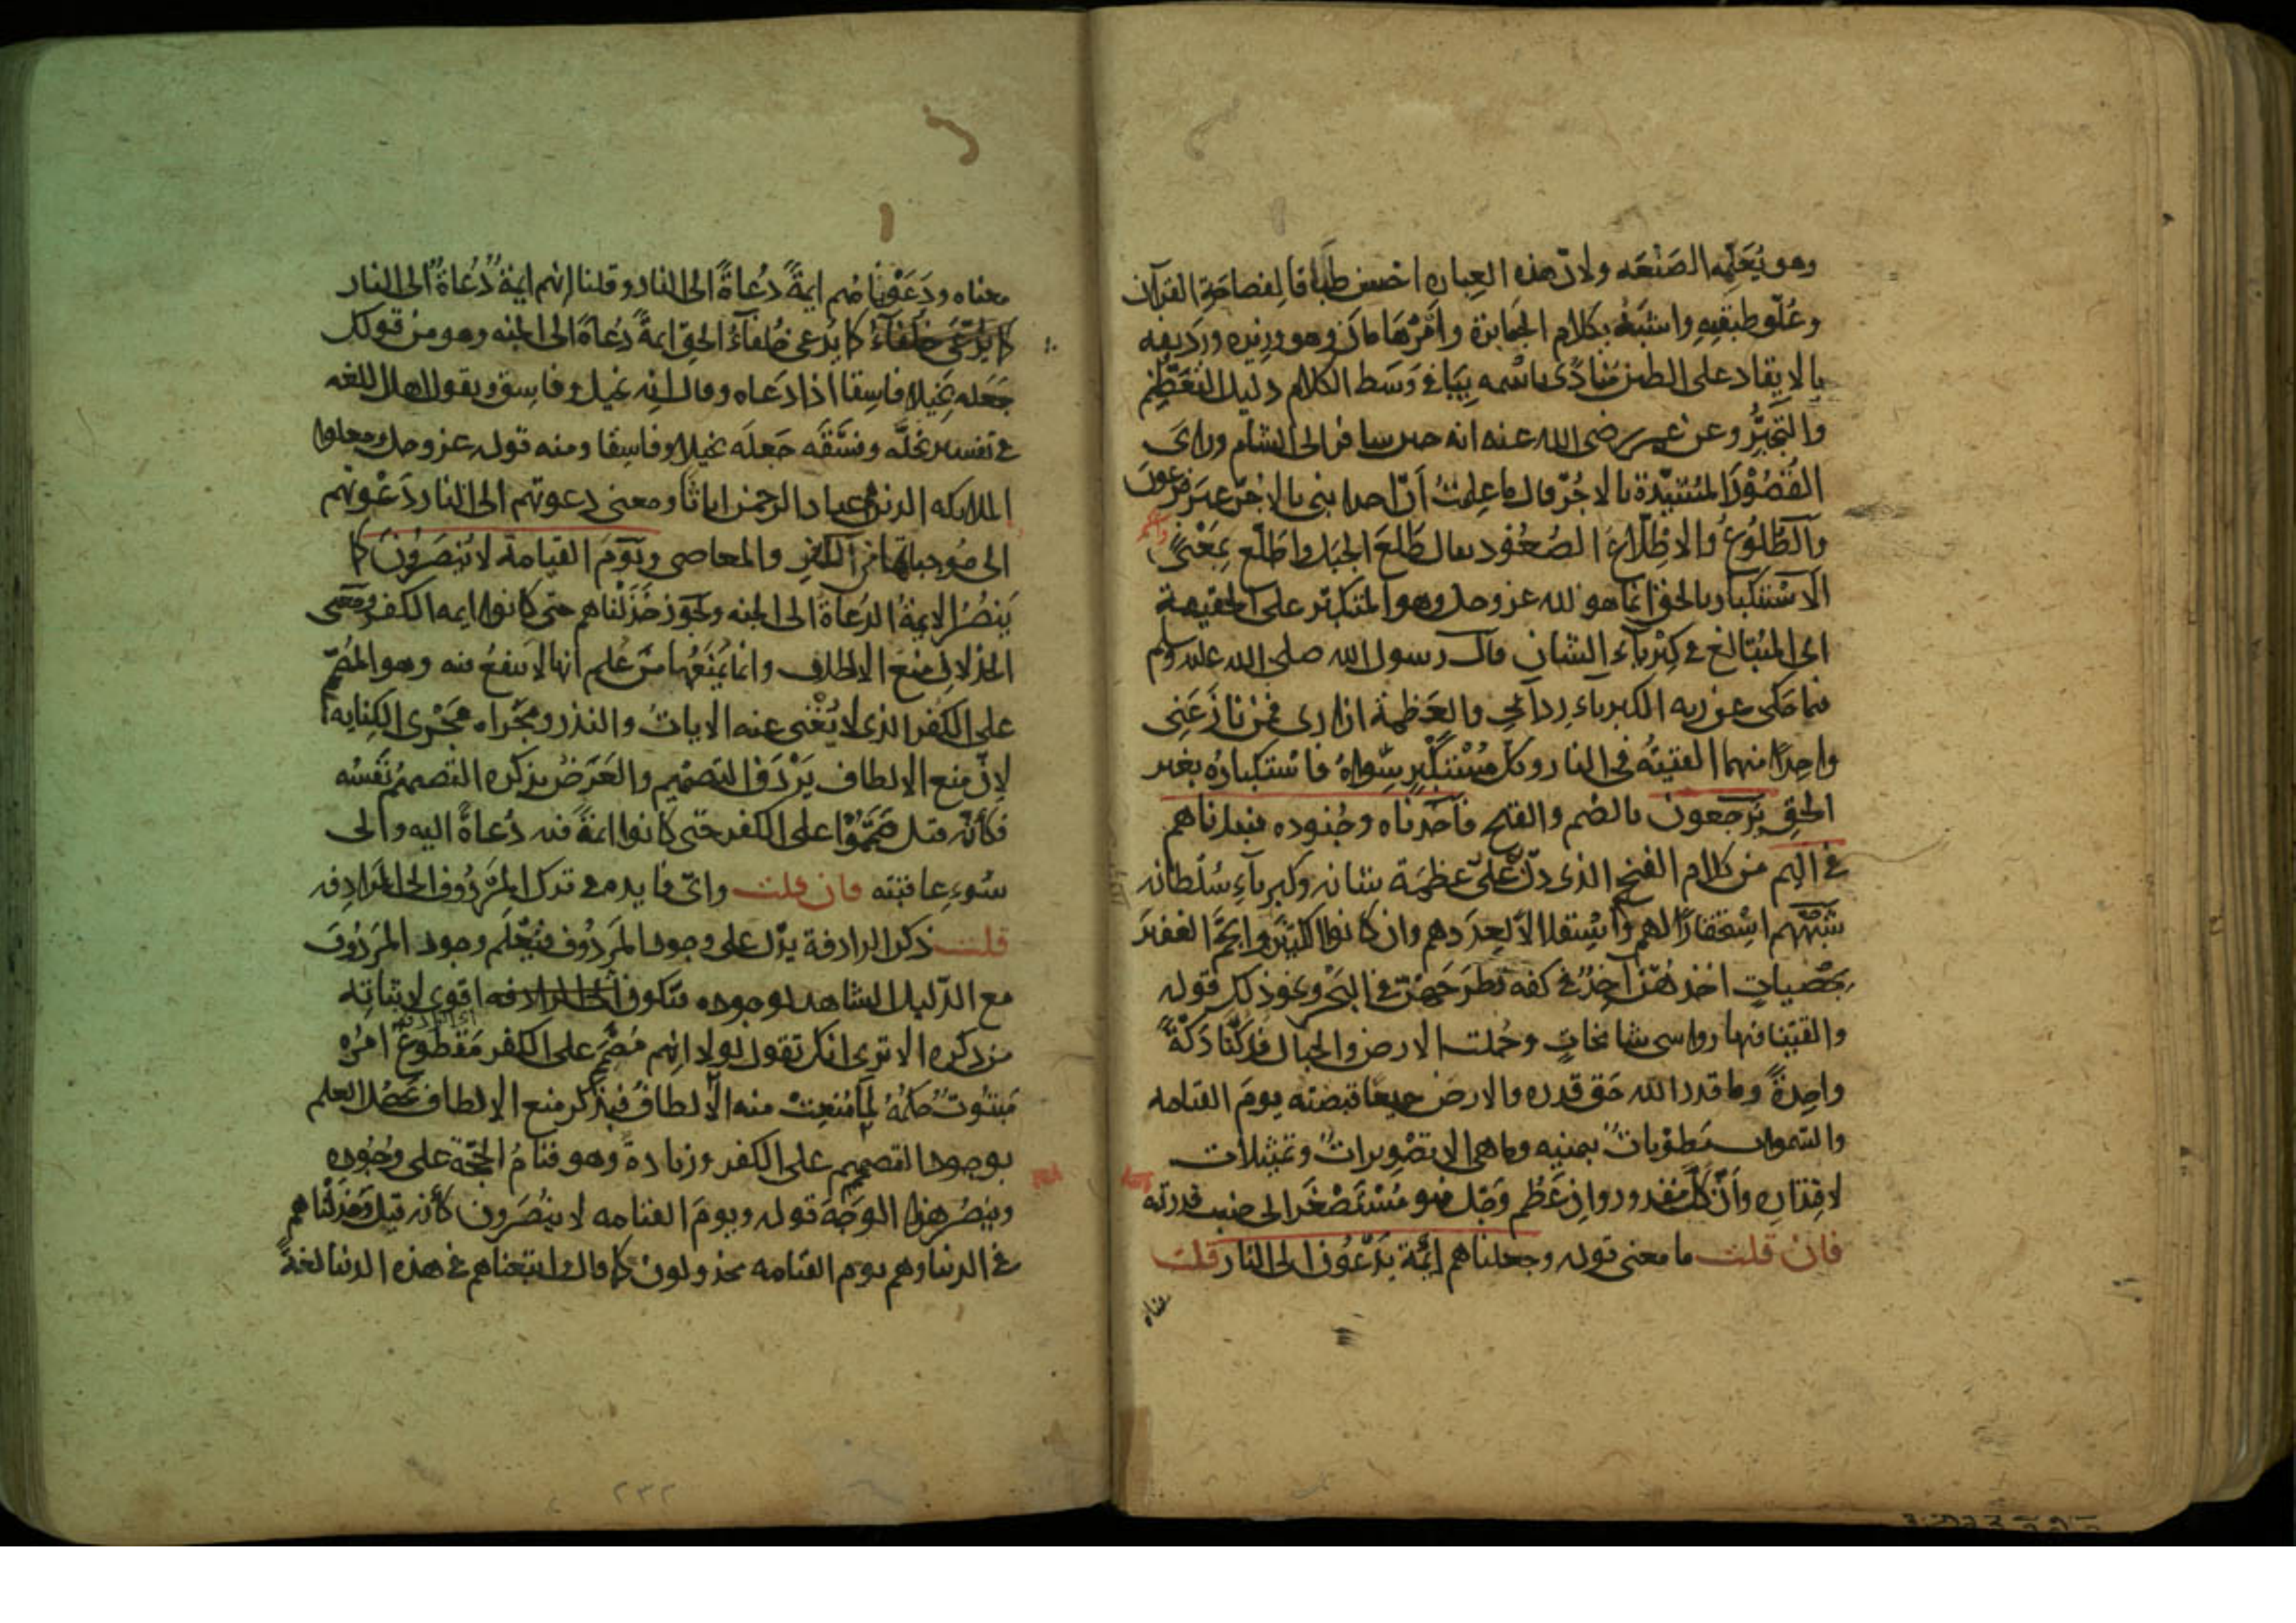 وهو يُعَلِّمه الصَنْعَه ولانّ هذه العِباره احسن طباقا لِفصاحَةِ القرآن
وعُلُوّ طبقتِهِ واشبَهُ بكلام الجَبابرة وأمْرُ هَامَانَ وهو وزيره ورَديفه
بالايقاد على الطين مُنادًى باسْمه بِيَا في وَسَط الكلام دليل التعَظُّم
والتجَبُّر وعن عمر رضى الله عنه انه حين سافر الى الشام وراى
القُصُوْرَ المُشَيَّدَة بالاجُرّ قال ما عَلِمتُ انّ احدا بنى بالاجُرّ غير فرعون
والطُّلُوعُ والاطِّلاعُ الصُعُود يقال طَلَعَ الجبَل واطّلَع بمَعْنًى
الاسْتكبار بالحق انما هو لله عز وجل وهو المتكبّر على الحقيقة
اى المُتبَالغ في كِبْرياءِ الشان قال رسول الله صلى الله عليه وسلم
فيما حَكى عن ربه الكبرياء رِدائي والعَظمة ازارى فمَن نازَعَنى
واحِدًا منهما القيتُه في النار وكل مُسْتكْبِر سِوَاهُ فاسْتكبارُه بغير
الحقّ يرجعون بالضم والفتح فأخذناه وجُنوده فنبذناهم
في اليم من كلام الفخم الذى دلّ على عظمَة شانه وكبرياءِ سُلطانه
شَبَّههم اسْتحقارًا لهم واسْتقلالاً لِعدَدهم وان كانوا الكثيرَ والجَمَّ الغفيرَ
بحَصَياتٍ اخذهُنّ آخِذٌ في كفه فطرَحَهُنّ في البَحْر ونحو ذلك قوله
والقَيْنا فيها رواسى شامخاتٍ وحُملت الارض والجبال فدكّتا دَكَّةً
واحِدةً وما قدروا الله حَق قدره والارضُ جميعًا قبضته يومَ القيامه
والسَّموات مَطوِيّاتٌ بيمينِه وما هى الا تصْوِيراتٌ وتمثيلات
لاقتِدارِه وأنّ كلَّ مقدور وان عَظُم وجَل فهو مُسْتَصْغَر الى جنب قدرته
فان قلت ما معنى قوله وجعلناهم ائِمّة يدْعُون الى النار قلت
معناه
معناه ودَعَوْناهُم ايمةً دُعاةً الى النار وقلنا انهم ايمةٌ دُعاةٌ الى النار
كما يُدْعَى خلفاءُ كما يُدعى خُلفاءُ الحقّ ايمةً دُعاةً الى الجنه وهو من قولك
جَعَله بَخيلا وفاسِقًا اذا دَعاه وقال انه بخيل وفاسِق ويقول اهل اللغه
في تفسير بخّلَه وفسَّقَه جَعلَه بخيلا وفاسِقًا ومنه قوله عز وجل وجعلوا
الملايكه الذين هم عباد الرحمن اناثا ومعنى دعوتهم الى النار دَعْوَتهم
الى مُوجباتها من الكفر والمعاصى ويَوْمَ القيامة لا يُنصَرُونَ كما
يَنصُرُ الايمةُ الدُعاةُ الى الجنه ويجوز خَذلناهم حتى كانوا ايمه الكفر ومعنى
الخذلان منع الالطاف وانما يَمْنَعُها مَنْ عُلِم انها لا تنفعُ فيه وهو المُصَمِّم
على الكفر الذى لا تُغْنى عنه الاياتُ والنذر ومَجْراه مَجْرى الكِنايه
لانّ منع الالطاف يَرْدَف التصميم والغَرَضُ بذكره التصميمُ نَفسُه
فكأنّه قيل صَمَّمُوْا على الكفر حتى كانوا ايمةً فيه دُعاةً اليه والى
سُوءِ عاقبته فان قلت واىّ فايده في ترك المَرْدُوف الى الرادِفه
قلت ذكر الرادفة يدُل على وجود المَردُوف فيُعْلَم وجود المرَدُوفِ
مع الدّليل الشاهد بوجوده فتكون الرادفه اقوى لاثباتِه
من ذكره الا ترى انك تقول لولا انهم مُصَمِّم على الكفر مَقطوعٌ امرُه
مَبتُوتٌ حكمُهُ لمَا مُنِعتْ منه الألطافُ فبذكر منع الالطاف يحصُل العلم
بوجود التصميم على الكفر وزيادة وهو قيامُ الحُجّة على وُجُوده
وينصُرُ هذا الوَجْهَ قوله ويومَ القيامه لا يُنصَرون كأنه قيل وخَذلناهم
في الدنيا وهم يوم القيامه مخذولون كما قال واتبعناهم في هذه الدنيا لعنةً
٢٣٢